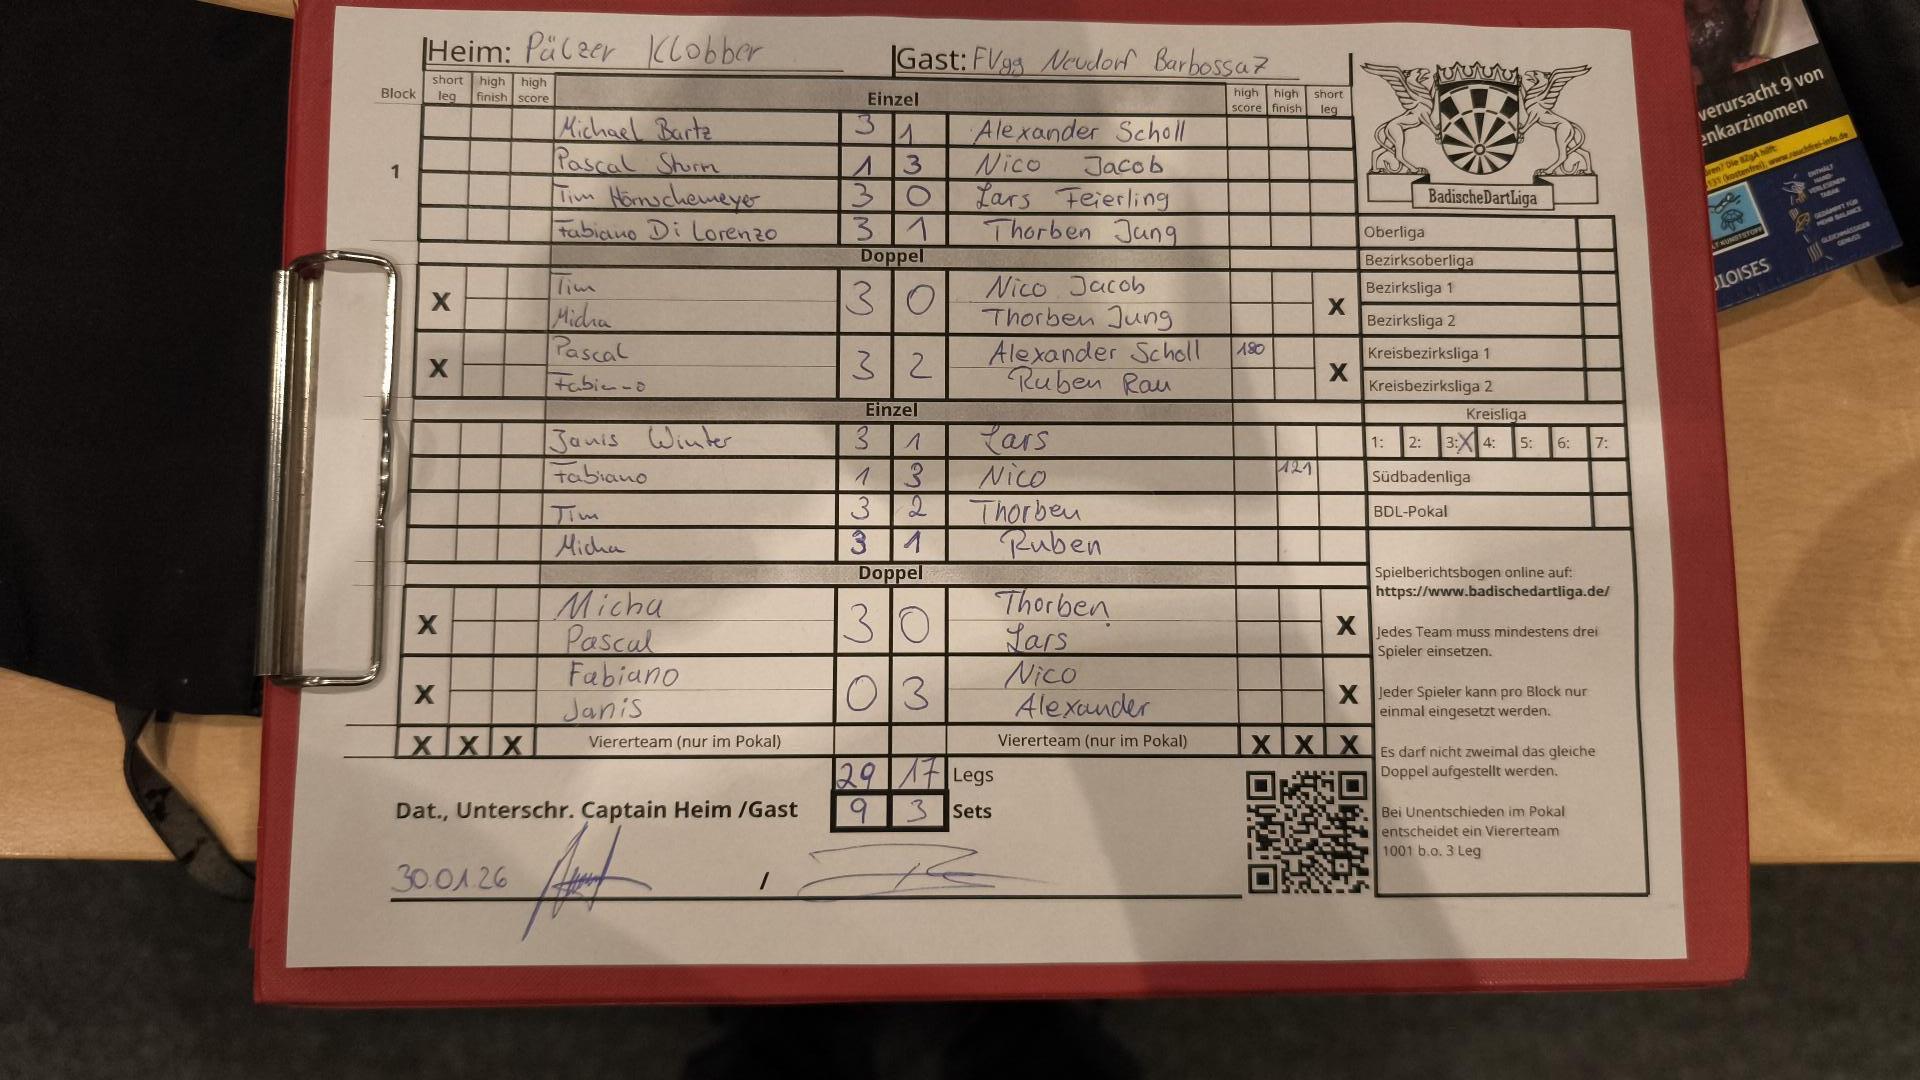 Heim: Pälzer Klobber Gast: FVgg Neudorf Barbossa7
Block short leg high finish high score Einzel high score high finish short leg
Michael Bartz 3 1 Alexander Scholl
1 Pascal Sturm 1 3 Nico Jacob
Tim Hörnschemeyer 3 0 Lars Feierling
Fabiano Di Lorenzo 3 1 Thorben Jung
Doppel
X Tim 3 0 Nico Jacob X
Micha Thorben Jung
X Pascal 3 2 Alexander Scholl 180 X
Fabiano Ruben Rau
Einzel
Janis Winter 3 1 Lars
Fabiano 1 3 Nico 121
Tim 3 2 Thorben
Micha 3 1 Ruben
Doppel
X Micha 3 0 Thorben X
Pascal Lars
X Fabiano 0 3 Nico X
Janis Alexander
X X X Viererteam (nur im Pokal) Viererteam (nur im Pokal) X X X
29 17 Legs
Dat., Unterschr. Captain Heim /Gast 9 3 Sets
30.01.26 /
BadischeDartLiga
Oberliga
Bezirksoberliga
Bezirksliga 1
Bezirksliga 2
Kreisbezirksliga 1
Kreisbezirksliga 2
Kreisliga
1: 2: 3: X 4: 5: 6: 7:
Südbadenliga
BDL-Pokal
Spielberichtsbogen online auf:
https://www.badischedartliga.de/
Jedes Team muss mindestens drei
Spieler einsetzen.
Jeder Spieler kann pro Block nur
einmal eingesetzt werden.
Es darf nicht zweimal das gleiche
Doppel aufgestellt werden.
Bei Unentschieden im Pokal
entscheidet ein Viererteam
1001 b.o. 3 Leg
verursacht 9 von
enkarzinomen
www.rauchfrei-info.de